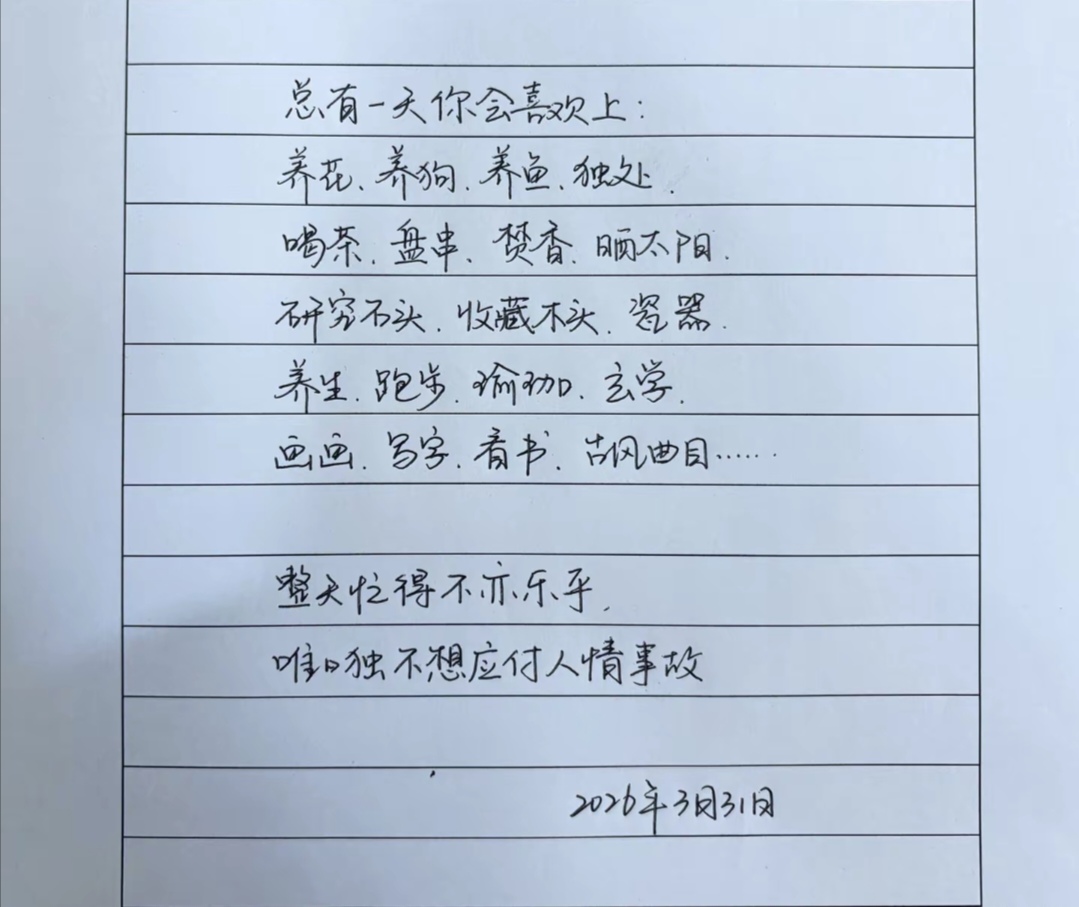 总有一天你会喜欢上：
养花、养狗、养鱼、独处、
喝茶、盘串、焚香、晒太阳、
研究石头、收藏木头、瓷器、
养生、跑步、瑜珈、玄学、
画画、写字、看书、古风曲目……
整天忙得不亦乐乎，
唯独不想应付人情事故
2026年3月31日